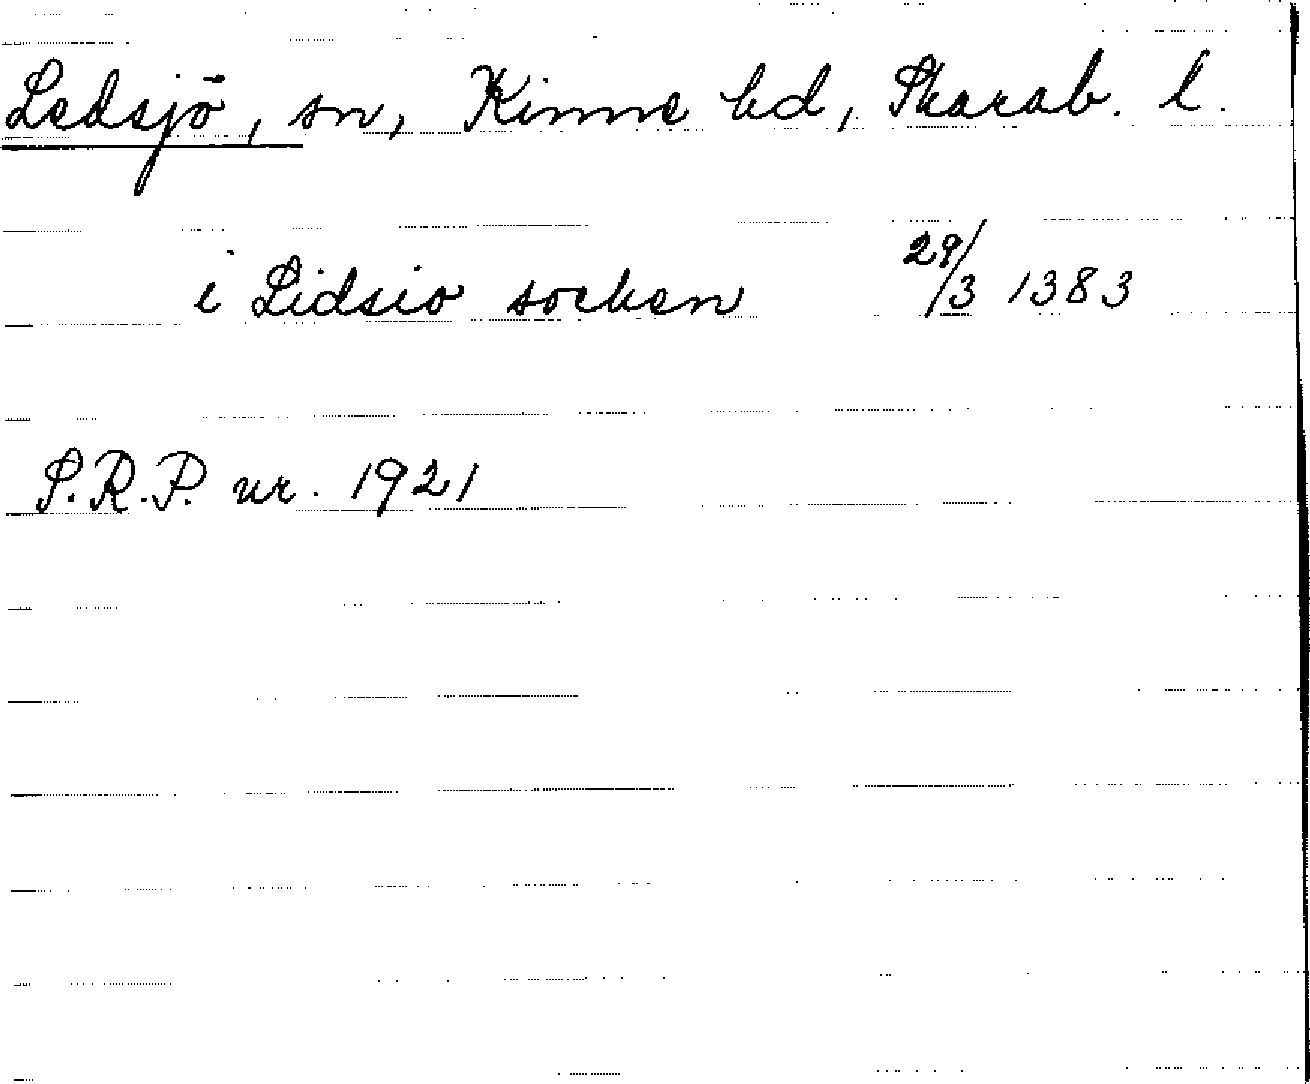 Ledsjö, sn, Kinne hd, Skarab. l.
i Lidsio socken 29/3 1383
S.R.P. nr. 1921